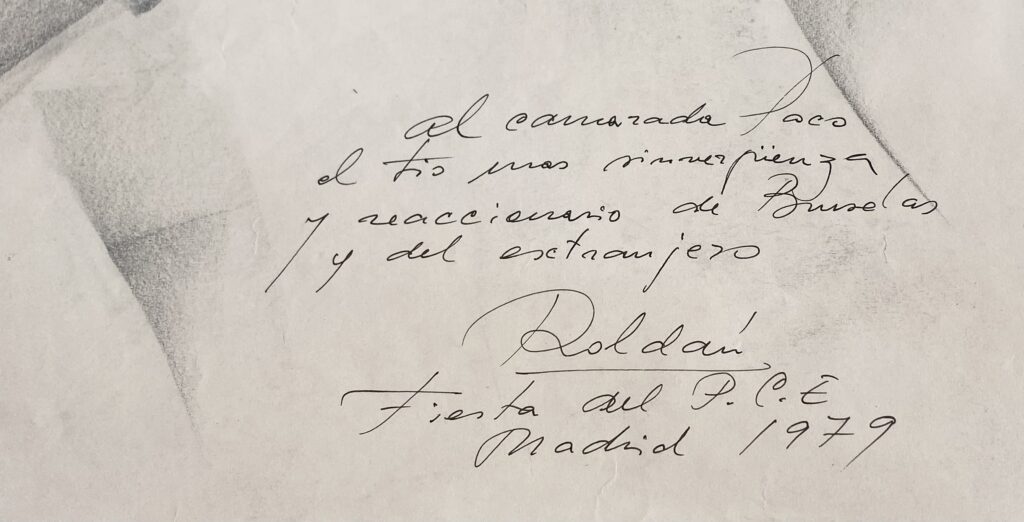 al camarada Paco
el tio mas sinvergüenza
y reaccionario de Bruselas
y del extranjero
Roldán
Fiesta del P.C.E
Madrid 1979